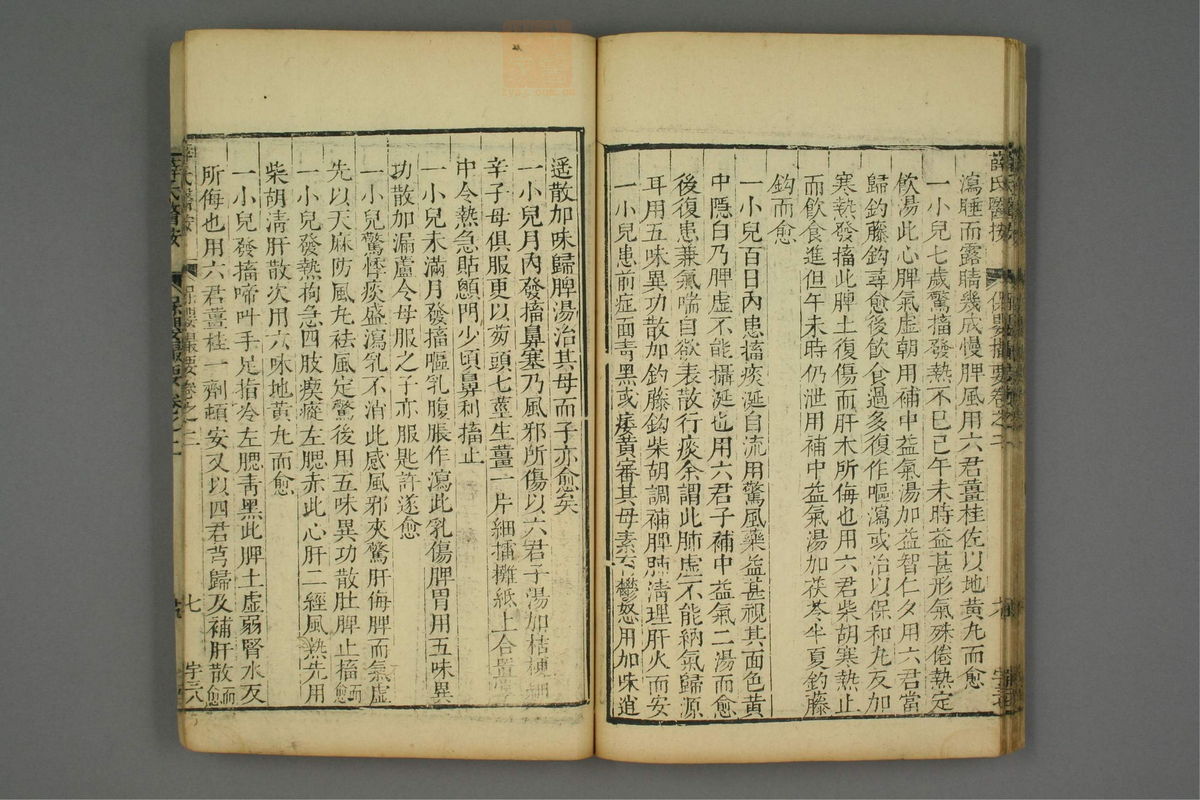 瀉睡而露睛幾成慢脾風用六君薑桂佐以地黃丸而愈
一小兒七歲驚搐發熱不已巳午未時益甚形氣殊倦熱定
飲湯此心脾氣虛朝用補中益氣湯加益智仁夕用六君當
歸釣藤鈎尋愈後飲食過多復作嘔瀉或治以保和丸反加
寒熱發搐此脾土復傷而肝木所侮也用六君柴胡寒熱止
而飲食進但午未時仍泄用補中益氣湯加茯苓半夏釣藤
鈎而愈
一小兒百日內患搐痰涎自流用驚風藥益甚視其面色黃
中隱白乃脾虛不能攝涎也用六君子補中益氣二湯而愈
後復患兼氣喘自欲表散行痰余謂此肺虛不能納氣歸源
耳用五味異功散加釣藤鈎柴胡調補脾肺清理肝火而安
一小兒患前症面青黑或痿黃審其母素有鬱怒用加味逍
遥散加味歸脾湯治其母而子亦愈矣
一小兒月內發搐鼻塞乃風邪所傷以六君子湯加桔梗細
辛子母俱服更以葱頭七莖生薑一片細擂攤紙上合置
中令熱急貼顖門少頃鼻利搐止
一小兒未滿月發搐嘔乳腹脹作瀉此乳傷脾胃用五味異
功散加漏蘆令母服之子亦服匙許遂愈
一小兒驚悸痰盛瀉乳不消此感風邪夾驚肝侮脾而氣虛
先以天麻防風丸祛風定驚後用五味異功散壯脾止搐而愈
一小兒發熱拘急四肢瘈瘲左腮赤此心肝二經風熱先用
柴胡清肝散次用六味地黃丸而愈
一小兒發搐啼叫手足指冷左腮青黑此脾土虛弱腎水反
所侮也用六君薑桂一劑頓安又以四君芎歸及補肝散而愈
薛氏醫按
保嬰撮要卷之二
七